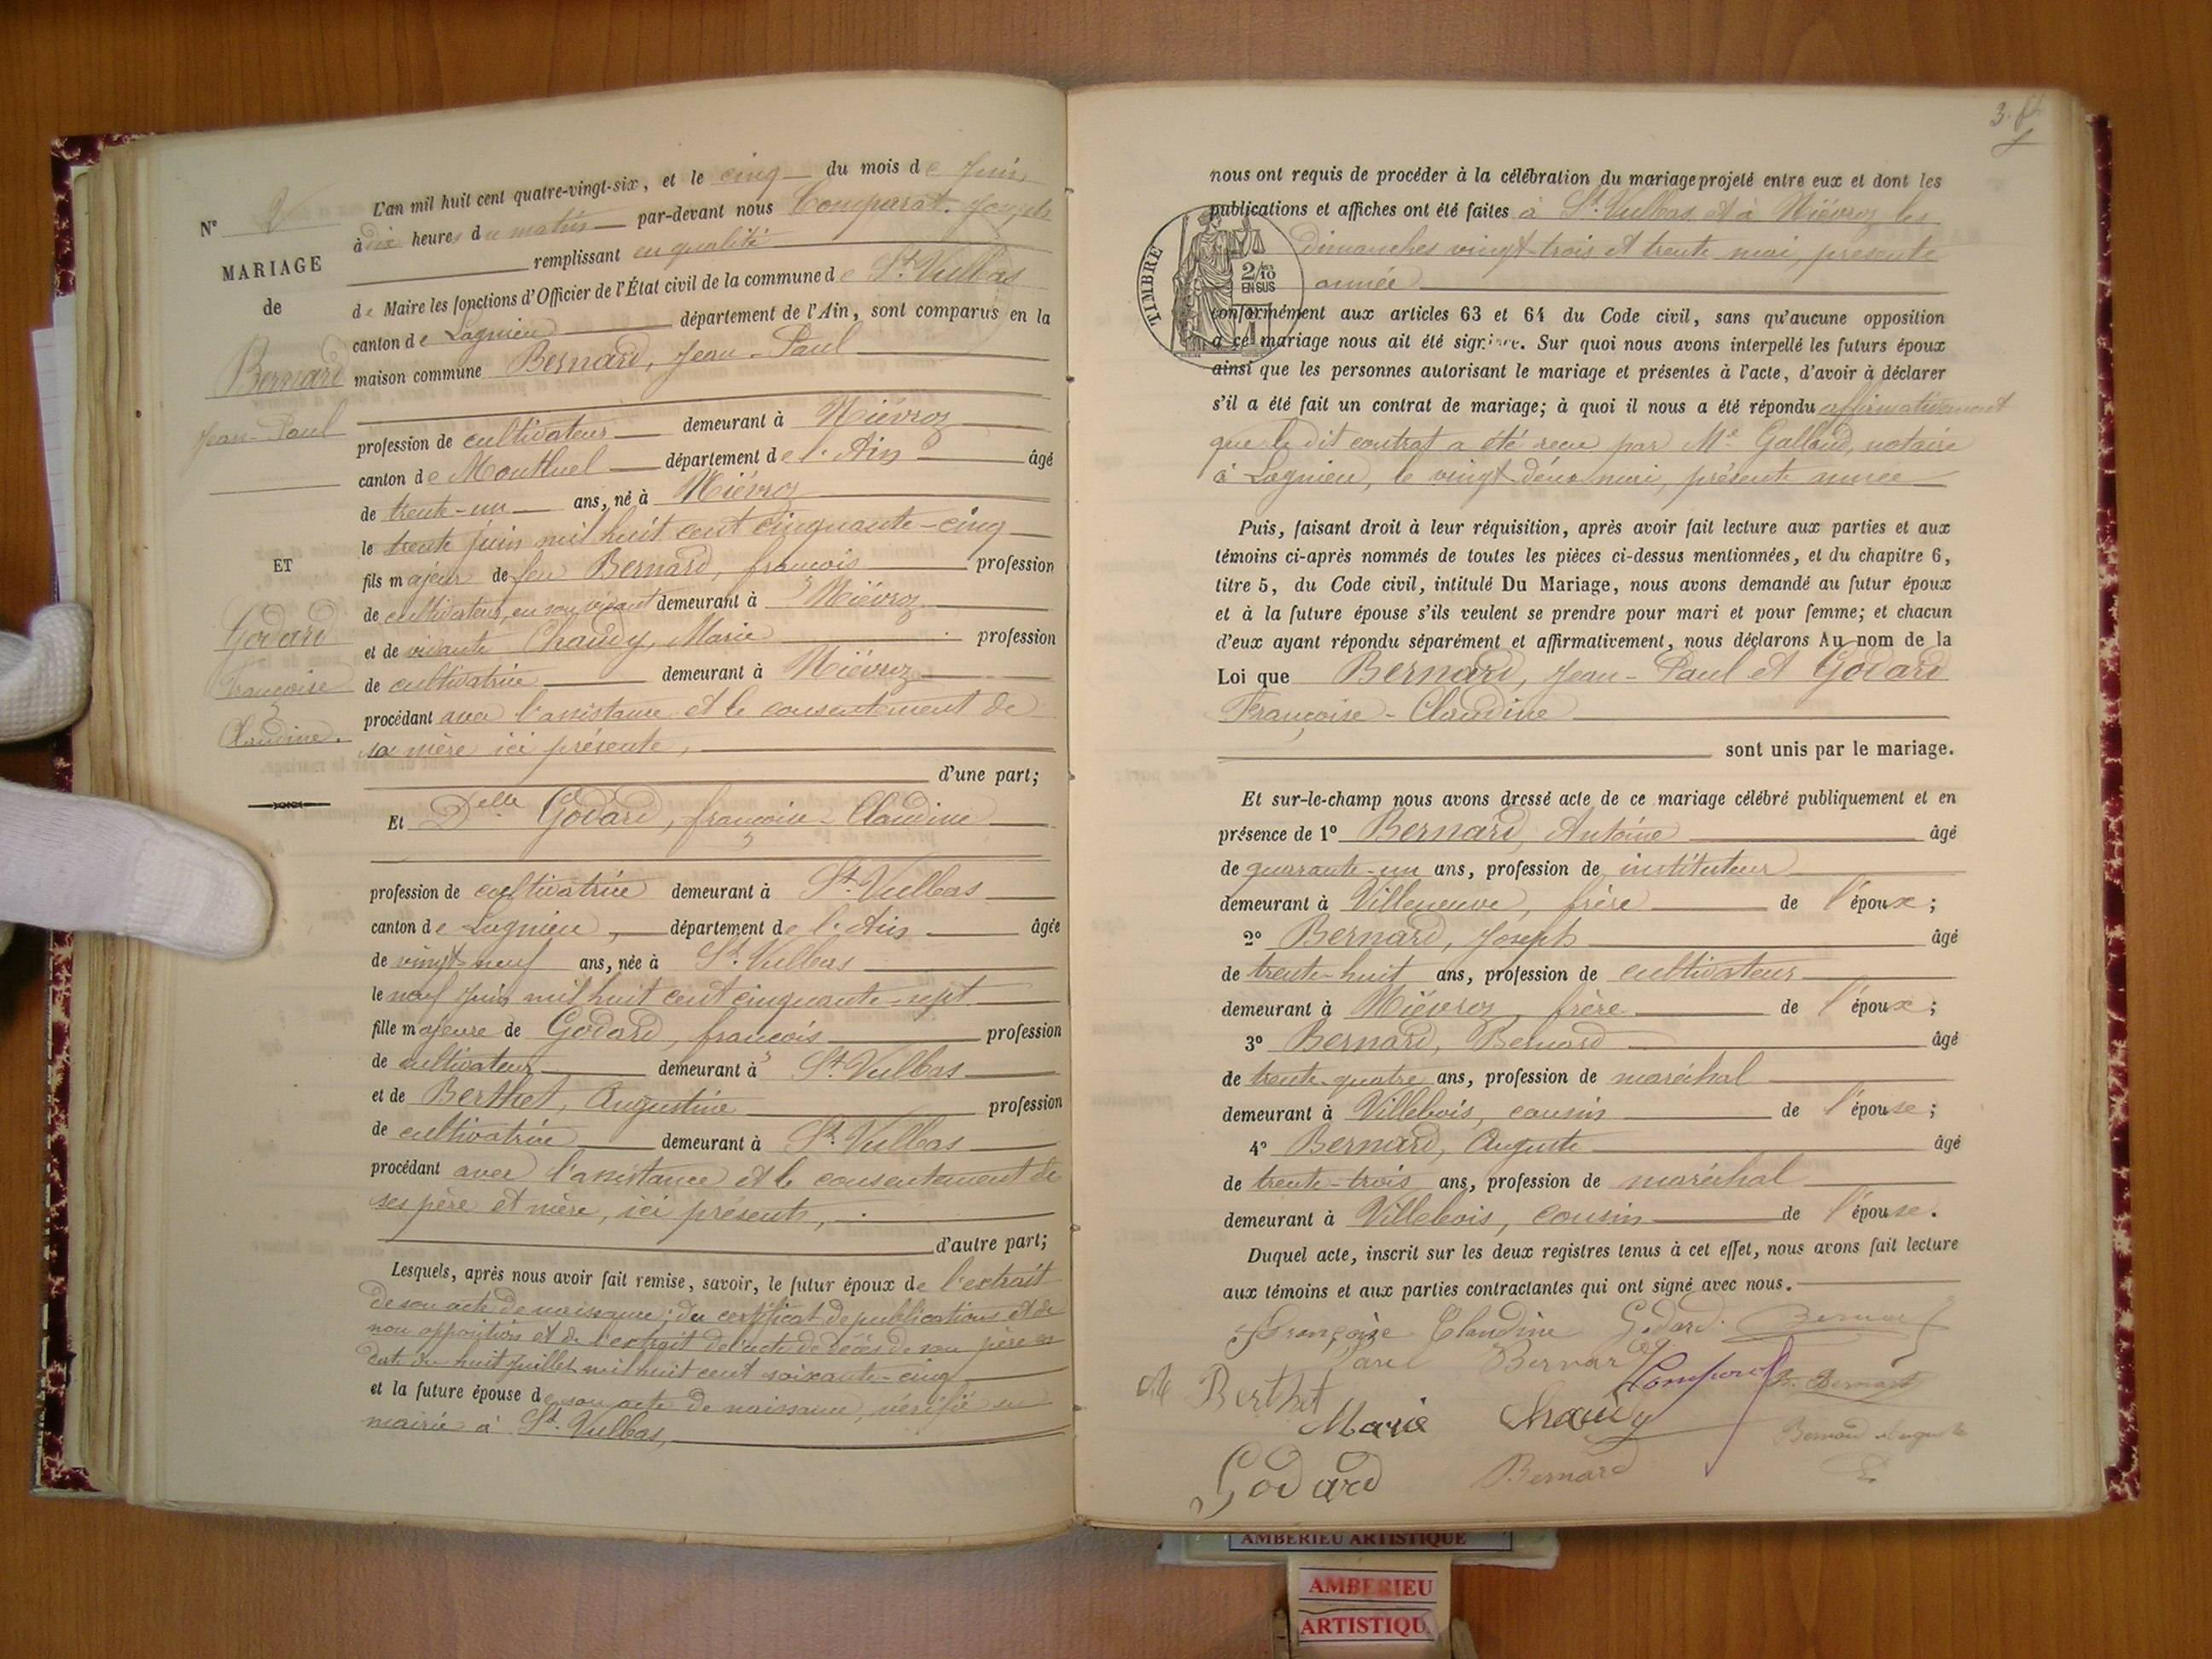 L'an mil huit cent quatre-vingt-six, et le cinq du mois de Juin
N° 2
à dix heures du matin par-devant nous Comparat, Joseph
MARIAGE
remplissant en qualité
de
de Maire les fonctions d'Officier de l'État civil de la commune de St. Vulbas
canton de Lagnieu département de l'Ain, sont comparus en la
Bernard
maison commune Bernard, Jean-Paul
Jean-Paul
profession de cultivateur demeurant à Niévroz
canton de Montluel département de l'Ain âgé
de trente-un ans, né à Niévroz
le trente juin mil huit cent cinquante-cinq
ET
fils majeur de feu Bernard, françois profession
de cultivateur, en son vivant demeurant à Niévroz
Godard
et de vivante Chaudy, Marie profession
Françoise
de cultivatrice demeurant à Niévroz
Claudine.
procédant avec l'assistance et le consentement de
sa mère ici présente,
d'une part;
Et Delle Godard, françoise-Claudine
profession de cultivatrice demeurant à St. Vulbas
canton de Lagnieu, département de l'Ain âgée
de vingt-neuf ans, née à St. Vulbas
le neuf Juin mil huit cent cinquante-sept
fille majeure de Godard, françois profession
de cultivateur demeurant à St. Vulbas
et de Berthet, Augustine profession
de cultivatrice demeurant à St. Vulbas
procédant avec l'assistance et le consentement de
ses père et mère, ici présents,
d'autre part;
Lesquels, après nous avoir fait remise, savoir, le futur époux de l'extrait
de son acte de naissance; du certificat de publications et de
non opposition et de l'extrait de l'acte de décès de son père en
date du huit Juillet mil huit cent soixante-cinq
et la future épouse de son acte de naissance, vérifié en
mairie à St. Vulbas,
3.
nous ont requis de procéder à la célébration du mariage projeté entre eux et dont les
publications et affiches ont été faites à St. Vulbas et à Niévroz les
dimanches vingt-trois et trente mai, présente
année
TIMBRE
2/10
EN SUS
conformément aux articles 63 et 64 du Code civil, sans qu'aucune opposition
à ce mariage nous ait été signifiée. Sur quoi nous avons interpellé les futurs époux
ainsi que les personnes autorisant le mariage et présentes à l'acte, d'avoir à déclarer
s'il a été fait un contrat de mariage; à quoi il nous a été répondu affirmativement
que le dit contrat a été reçu par Me Galland, notaire
à Lagnieu, le vingt-deux mai, présente année
Puis, faisant droit à leur réquisition, après avoir fait lecture aux parties et aux
témoins ci-après nommés de toutes les pièces ci-dessus mentionnées, et du chapitre 6,
titre 5, du Code civil, intitulé Du Mariage, nous avons demandé au futur époux
et à la future épouse s'ils veulent se prendre pour mari et pour femme; et chacun
d'eux ayant répondu séparément et affirmativement, nous déclarons Au nom de la
Loi que Bernard, Jean-Paul et Godard
Françoise-Claudine
sont unis par le mariage.
Et sur-le-champ nous avons dressé acte de ce mariage célébré publiquement et en
présence de 1° Bernard, Antoine âgé
de quarante-un ans, profession de instituteur
demeurant à Villeneuve, frère de l'époux;
2° Bernard, Joseph âgé
de trente-huit ans, profession de cultivateur
demeurant à Niévroz, frère de l'époux;
3° Bernard, Bernard âgé
de trente-quatre ans, profession de maréchal
demeurant à Villebois, cousin de l'épouse;
4° Bernard, Auguste âgé
de trente-trois ans, profession de maréchal
demeurant à Villebois, cousin de l'épouse.
Duquel acte, inscrit sur les deux registres tenus à cet effet, nous avons fait lecture
aux témoins et aux parties contractantes qui ont signé avec nous.
Françoise Claudine Godard Bernard
Paul Bernard Comparat B. Bernard
A Berthet
Marie Chaudy
Bernard Auguste
Godard Bernard
AMBERIEU ARTISTIQUE
AMBERIEU
ARTISTIQU